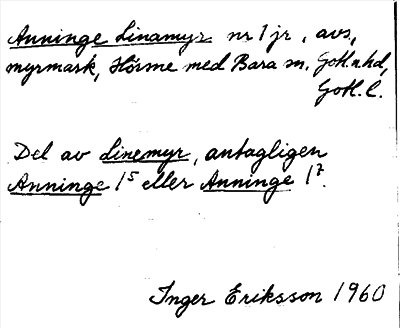 Anninge Linamyr nr 1 jr, avs,
myrmark, Hörsne med Bara sn, Gotl. n hd,
Gotl. l.
Del av Linemyr, antagligen
Anninge 1⁵ eller Anninge 1⁷.
Inger Eriksson 1960